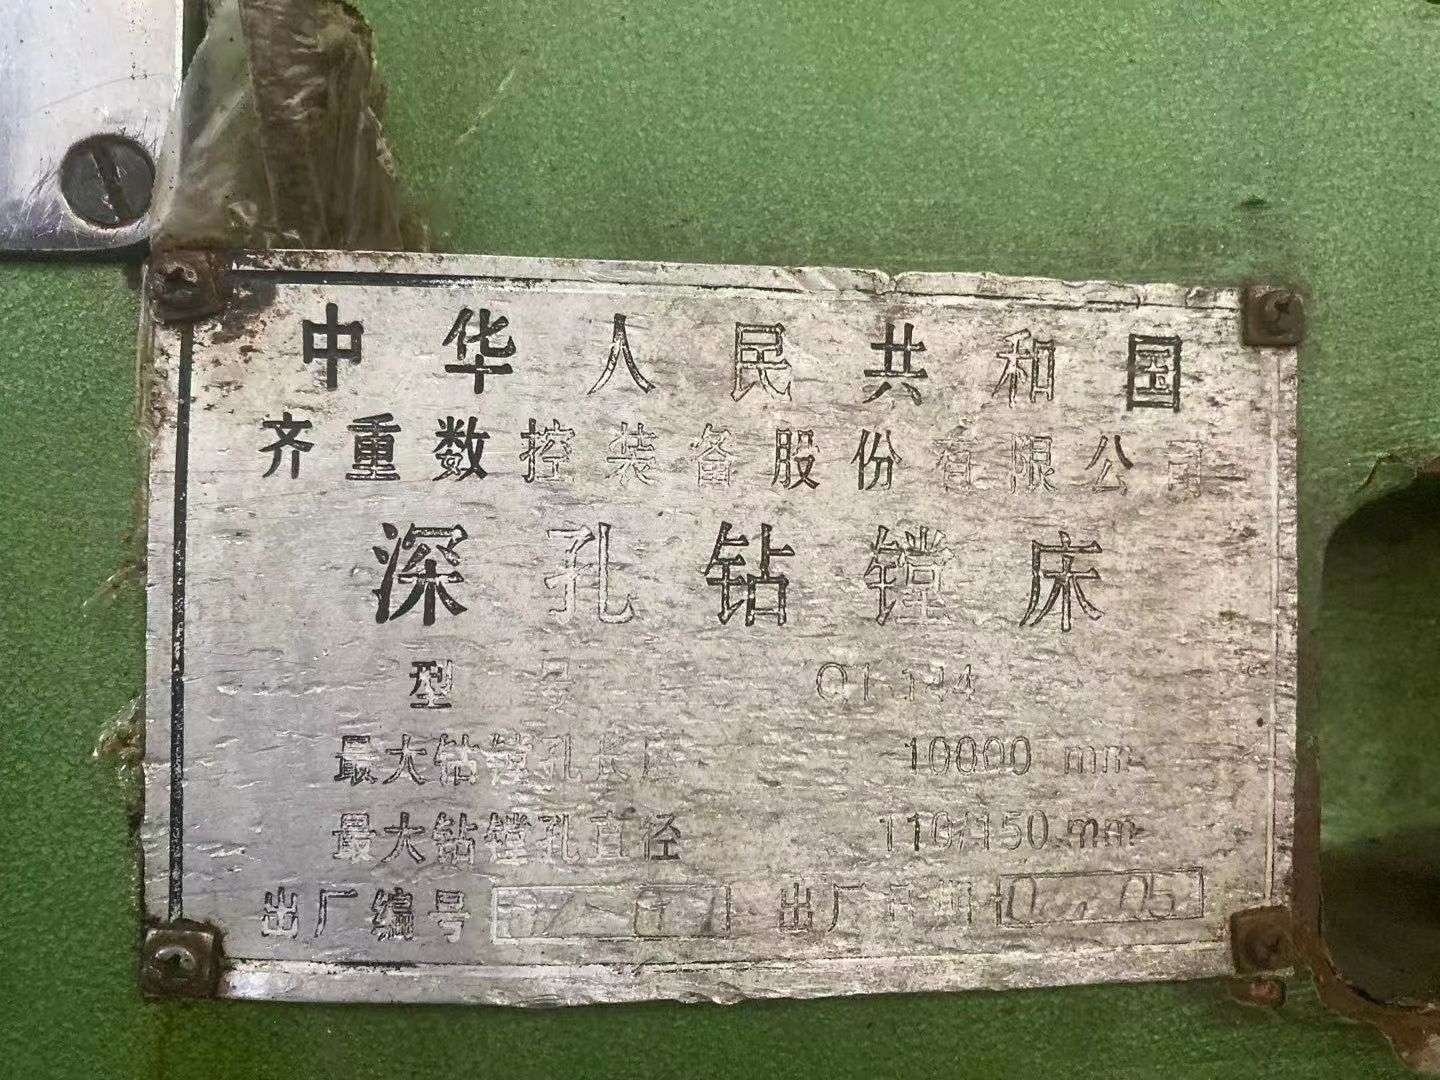 中华人民共和国
齐重数控装备股份有限公司
深孔钻镗床
型 号
最大钻镗孔长度 10000 mm
最大钻镗孔直径 110/150 mm
出厂编号 出厂日期